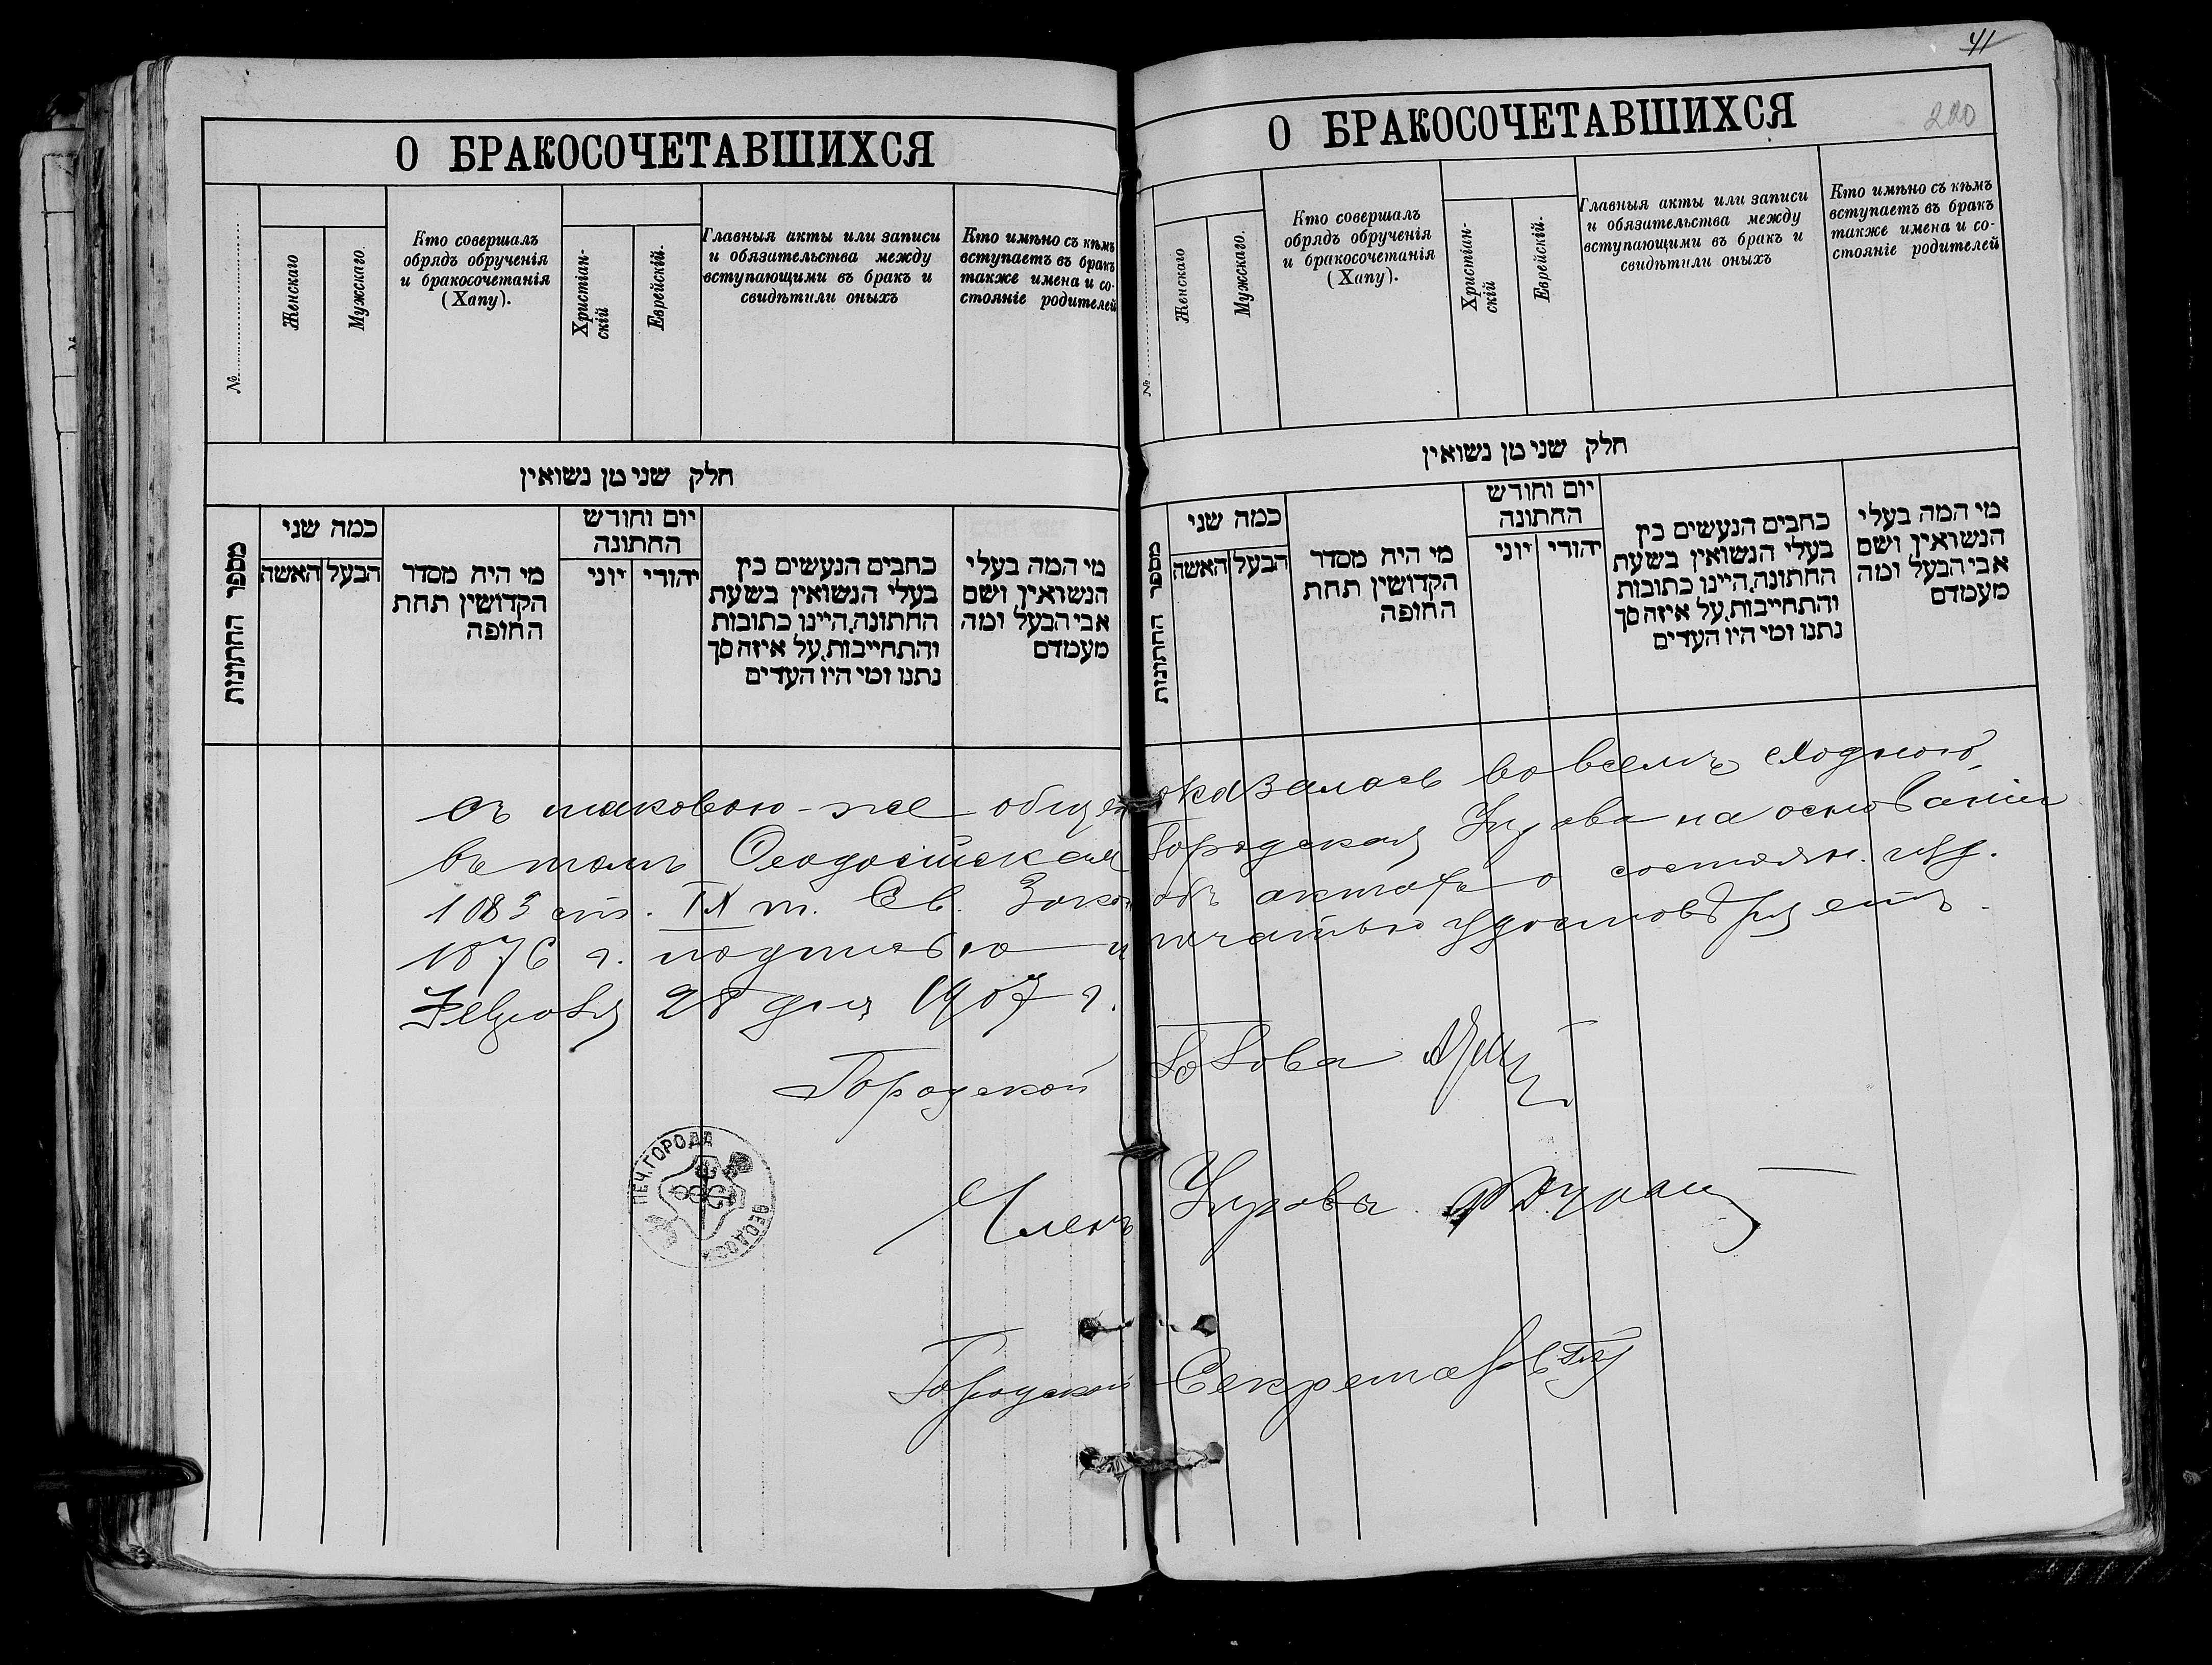 41
О БРАКОСОЧЕТАВШИХСЯ
№
Женскаго
Мужскаго.
Кто совершалъ
обрядъ обрученія
и бракосочетанія
(Хапу).
Христіан-
скій
Еврейскій.
Главныя акты или записи
и обязательства между
вступающими въ бракъ и
свидѣтили оныхъ
Кто имѣно съ кѣмъ
вступаетъ въ бракъ
также имена и со-
стояніе родителей
חלק שני מן נשואין
מספר החתונות
כמה שני
האשה
הבעל
מי היה מסדר
הקדושין תחת
החופה
יום וחודש
החתונה
יוני
יהודי
כתבים הנעשים בין
בעלי הנשואין בשעת
החתונה, היינו כתובות
והתחייבות, על איזה סך
נתנו ומי היו העדים
מי המה בעלי
הנשואין ושם
אבי הבעל ומה
מעמדם
О БРАКОСОЧЕТАВШИХСЯ
220
№
Женскаго
Мужскаго.
Кто совершалъ
обрядъ обрученія
и бракосочетанія
(Хапу).
Христіан-
скій
Еврейскій.
Главныя акты или записи
и обязательства между
вступающими въ бракъ и
свидѣтили оныхъ
Кто имѣно съ кѣмъ
вступаетъ въ бракъ
также имена и со-
стояніе родителей
חלק שני מן נשואין
מספר החתונות
כמה שני
האשה
הבעל
מי היה מסדר
הקדושין תחת
החופה
יום וחודש
החתונה
יוני
יהודי
כתבים הנעשים בין
בעלי הנשואין בשעת
החתונה, היינו כתובות
והתחייבות, על איזה סך
נתנו ומי היו העדים
מי המה בעלי
הנשואין ושם
אבי הבעל ומה
מעמדם
съ таковою-же оказалась во всемъ сходною,
въ томъ Ѳеодосійская Городская Управа на основаніи
1083 ст. IX т. Св. Закон объ актахъ о состоян. изд.
1876 г. подписью и печатью удостовѣряетъ.
Февраля 28 дня 1907 г.
Городской Голова
ПЕЧ. ГОРОДА ѲЕОДОС
Членъ Управы
Городской Секретарь